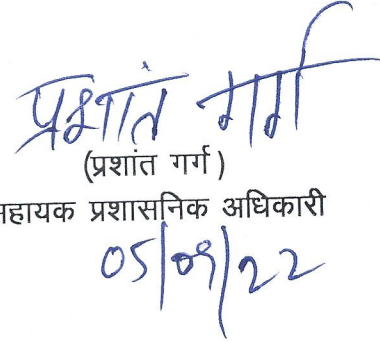 प्रशांत गर्ग
(प्रशांत गर्ग)
सहायक प्रशासनिक अधिकारी
05/09/22